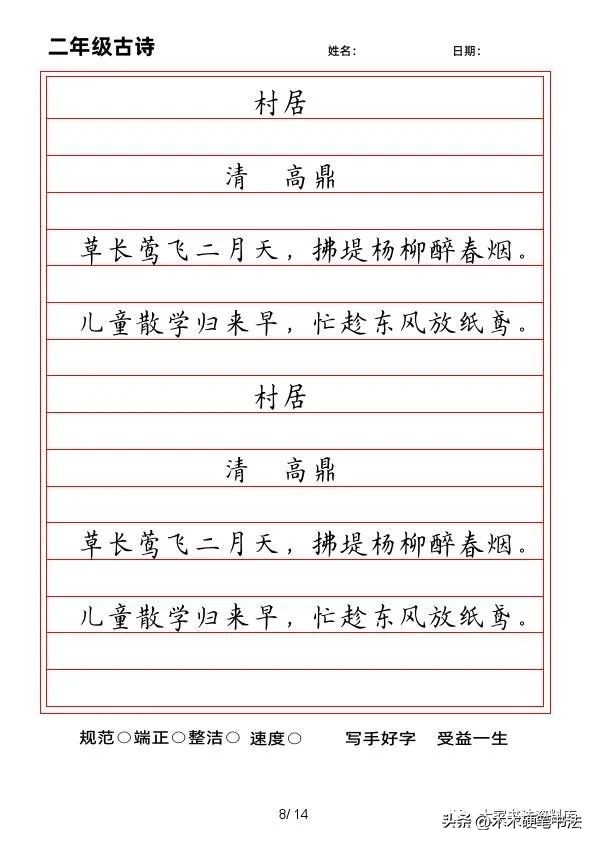 二年级古诗 姓名： 日期：
村居
清 高鼎
草长莺飞二月天，拂堤杨柳醉春烟。
儿童散学归来早，忙趁东风放纸鸢。
村居
清 高鼎
草长莺飞二月天，拂堤杨柳醉春烟。
儿童散学归来早，忙趁东风放纸鸢。
规范○端正○整洁○ 速度○ 写手好字 受益一生
8/14
头条 @木木硬笔书法